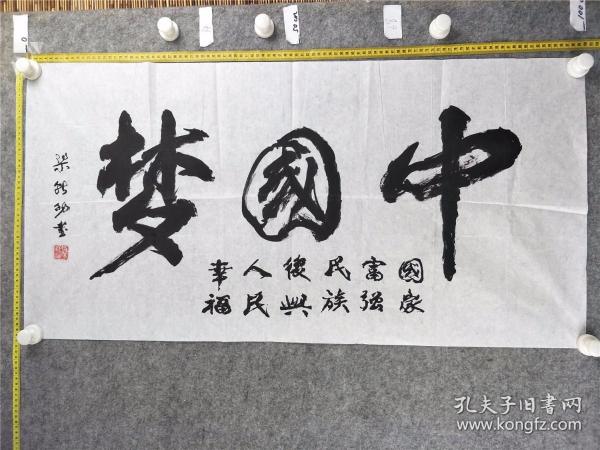 中國梦
國家
富强
民族
復興
人民
幸福
孔夫子旧书网
www.kongfz.com